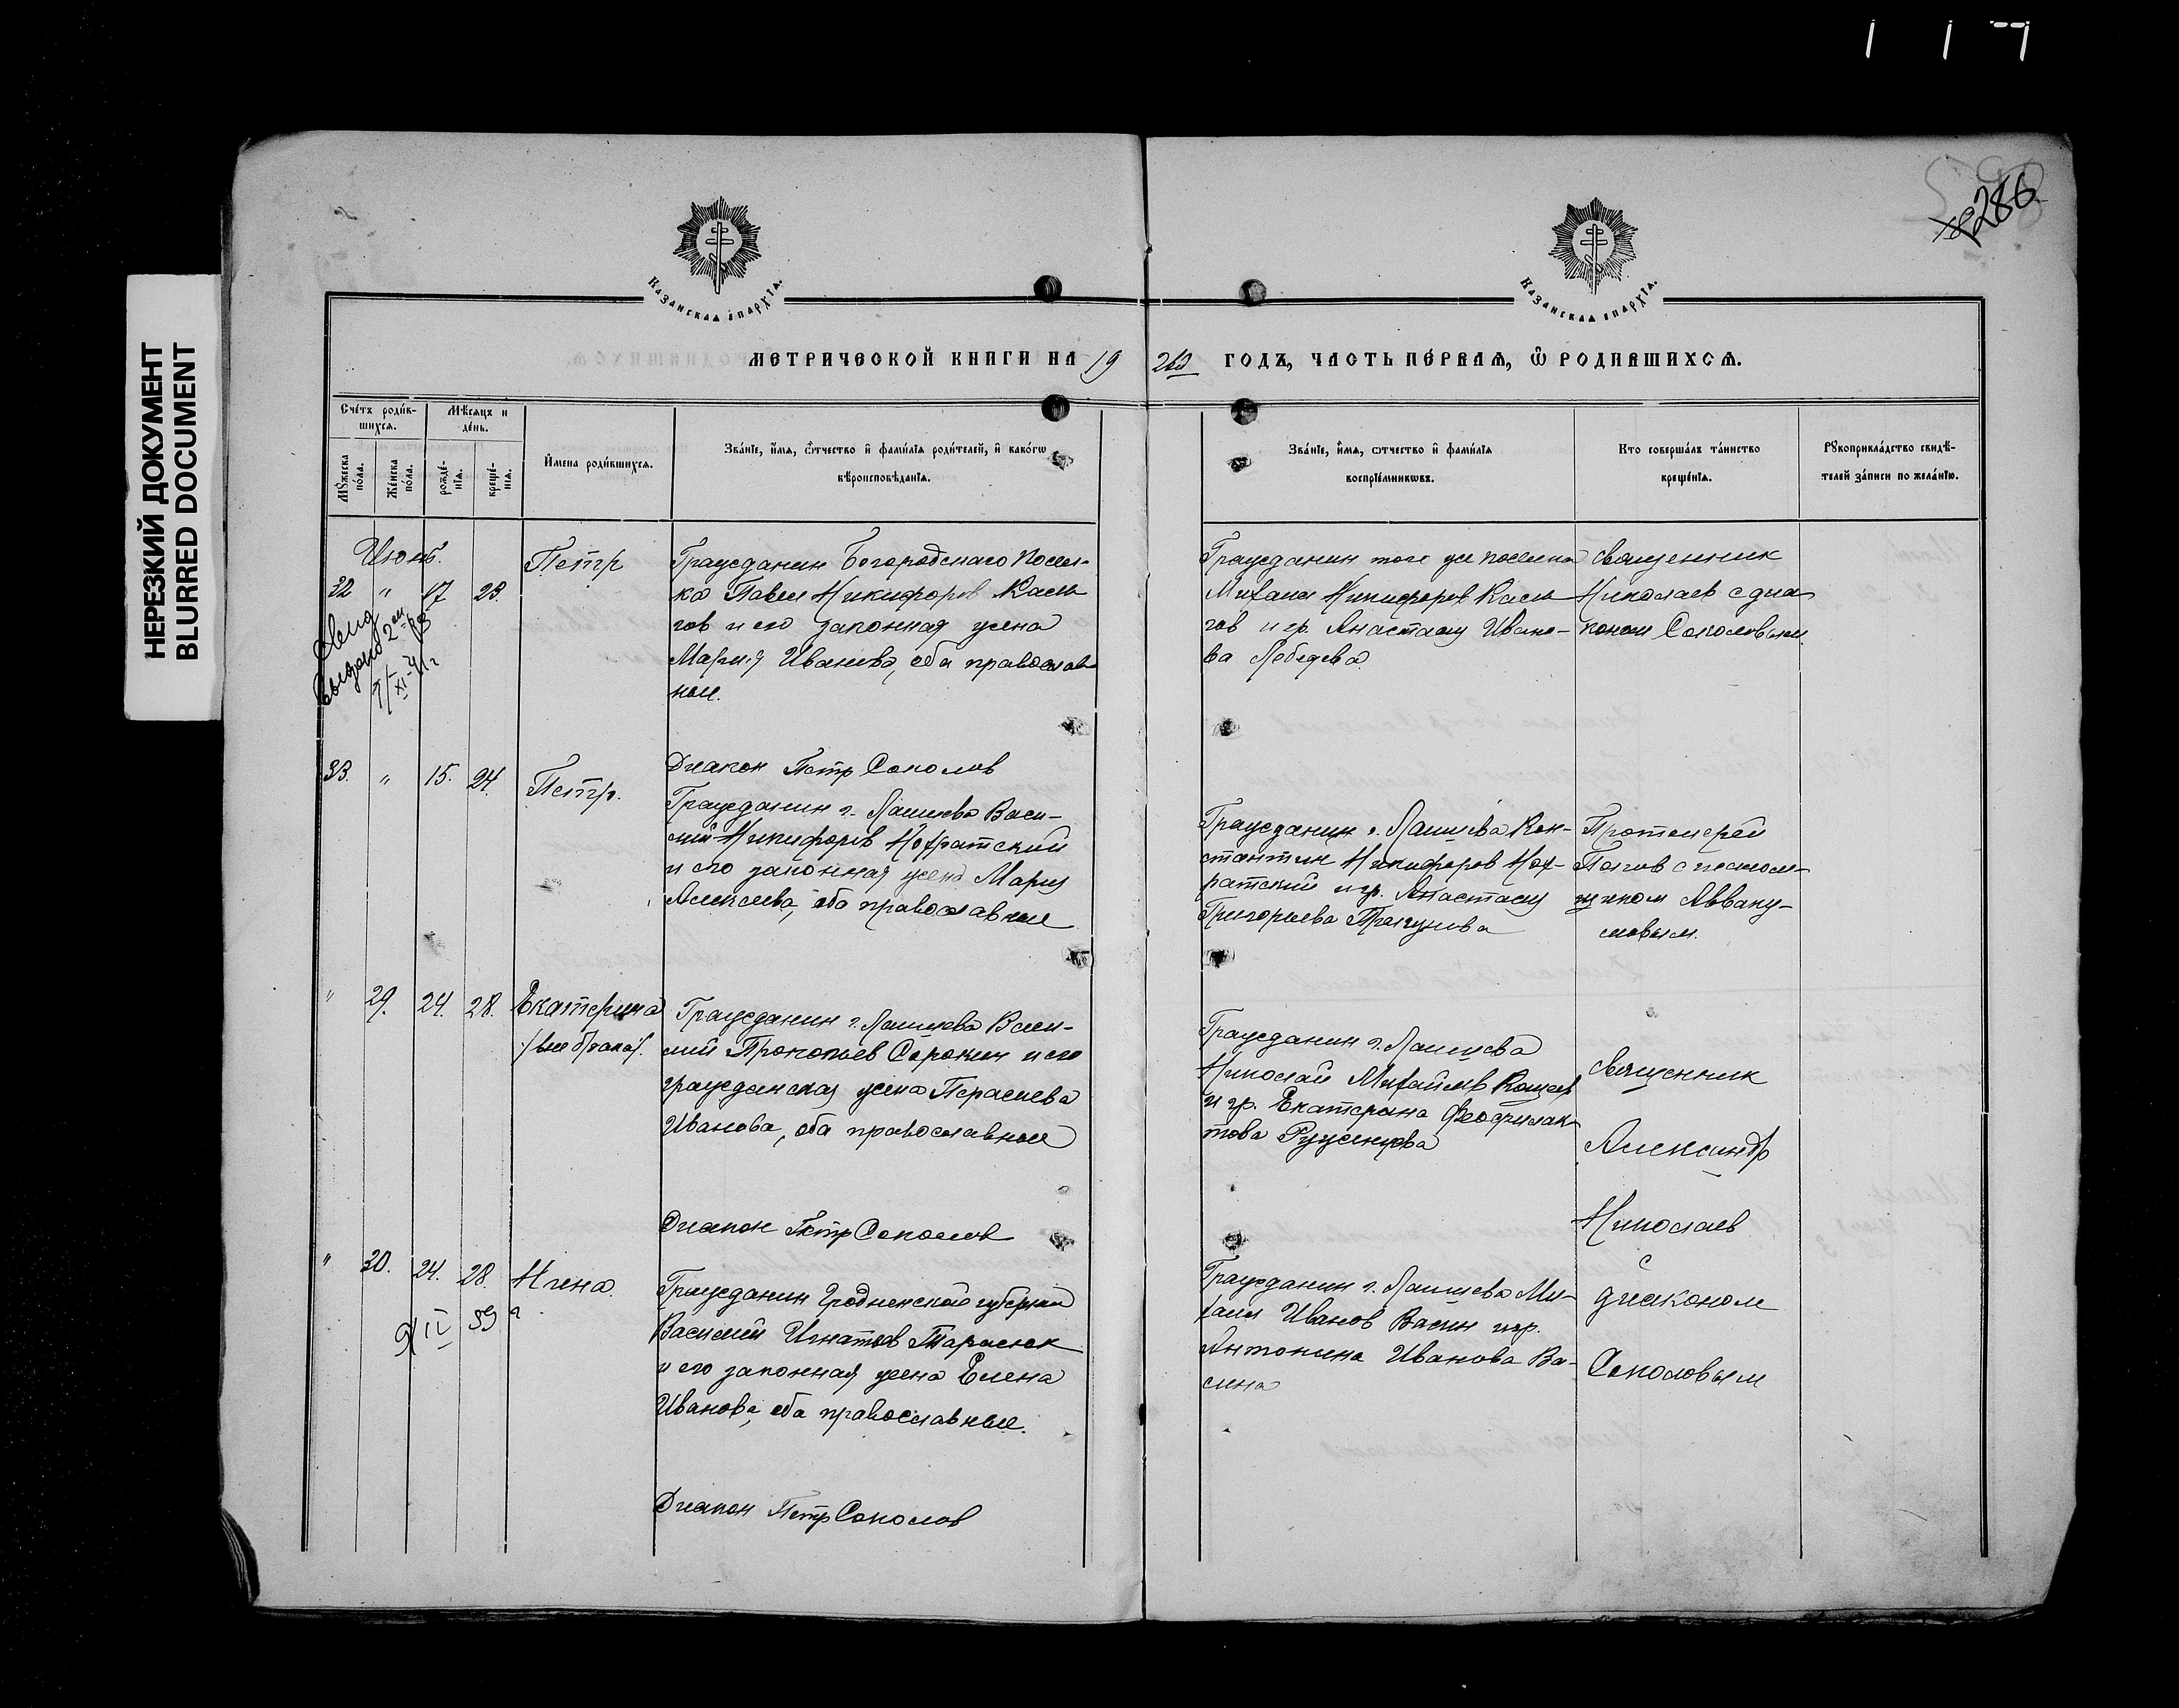 НЕРЕЗКИЙ ДОКУМЕНТ
BLURRED DOCUMENT
286
Казанская епархїа.
Казанская епархїа.
МЕТРИЧЕСКОЙ КНИГИ НА 19
ГОДЪ, ЧАСТЬ ПЕРВАЯ, Ѿ РОДИВШИХСЯ.
Счетъ родившихся.
Мѣсяцъ и день.
Мужеска пола.
Женска пола.
рожденїя.
крещенїя.
Имена родившихся.
Званїе, имя, ѿтчество и фамилїя родителей, и какогѡ
вѣроисповѣданїя.
Званїе, имя, ѿтчество и фамилїя
воспрїемникѡвъ.
Кто совершалъ таинство
крещенїя.
Рукоприкладство свидѣ-
телей записи по желанїю.
Июнь.
32 " 17 23.
Петр
Гражданин Богородскаго посел-
ка Павел Никифоров
и его законная жена
Мария Иванова, оба православ-
ные.
Гражданин того же поселка
Михаил Никифоров
и гр. Анастасия Ивано-
ва Лебедева
Священник
Николаев с диа
коном Соколовым
выдано
Диакон Петр Соколов
33. " 15. 24.
Петр.
Гражданин г. Лаишева Васи-
лий Никифоров Нохратский
и его законная жена Мария
Алексеева, оба православные
Гражданин г. Лаишева Кон-
стантин Никифоров Нох-
ратский и гр. Анастасия
Григорьева
Протоиерей
Попов с псалом-
щиком Авваку-
мовым.
" 29. 24. 28.
Екатерина
/вне брака/.
Гражданин г. Лаишева Васи-
лий Прокопьев Сорокин и его
гражданская жена
Иванова, оба православные
Гражданин г. Лаишева
Николай Михайлов
и гр. Екатерина Феофилак-
това
Священник
Александр
Николаев
с
диаконом
Соколовым
Диакон Петр Соколов
" 30. 24. 28.
Гражданин Гродненской губернии
Василий Игнатьев Тарасюк
и его законная жена Елена
Иванова, оба православные.
Гражданин г. Лаишева Ми-
хаил Иванов Васин и гр.
Антонина Иванова Ва-
сина
Диакон Петр Соколов